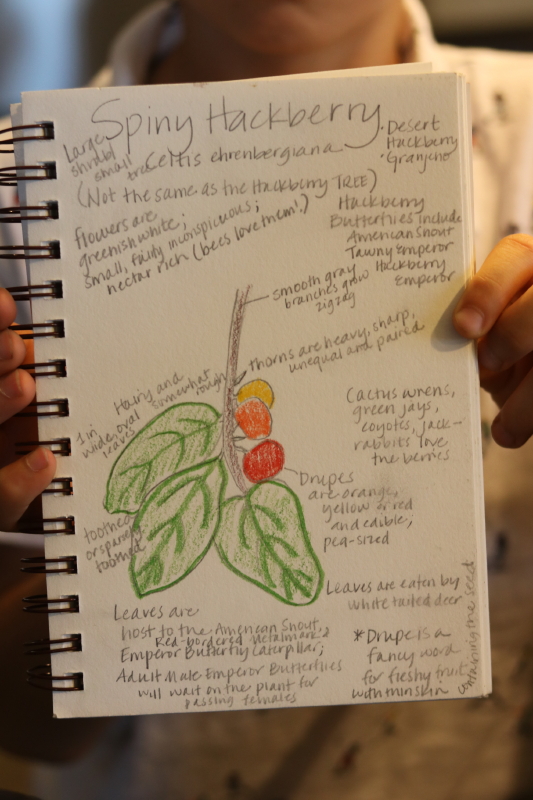 Spiny Hackberry
Large
shrub/
small tree
Celtis ehrenbergiana
(Not the same as the Hackberry Tree)
• Desert
Hackberry
• Granjeno
flowers are
greenish white;
small, fairly inconspicuous;
nectar rich (bees love them!)
Hackberry
Butterflies Include
American Snout
Tawny Emperor
Hackberry
Emperor
smooth gray
branches grow
zigzag
thorns are heavy, sharp,
unequal and paired
Hairy and
somewhat
rough
1 in
wide, oval
leaves
Cactus wrens,
green jays,
coyotes, jack-
rabbits love
the berries
Drupes
are orange,
yellow or red
and edible;
pea-sized
toothed
or sparsely
toothed
Leaves are eaten by
white tailed deer
Leaves are
host to the American Snout,
Red-bordered Metalmark &
Emperor Butterfly Caterpillar;
Adult Male Emperor Butterflies
will wait on the plant for
passing females
*Drupe is a
fancy word
for fleshy fruit
with thin skin
containing the seed